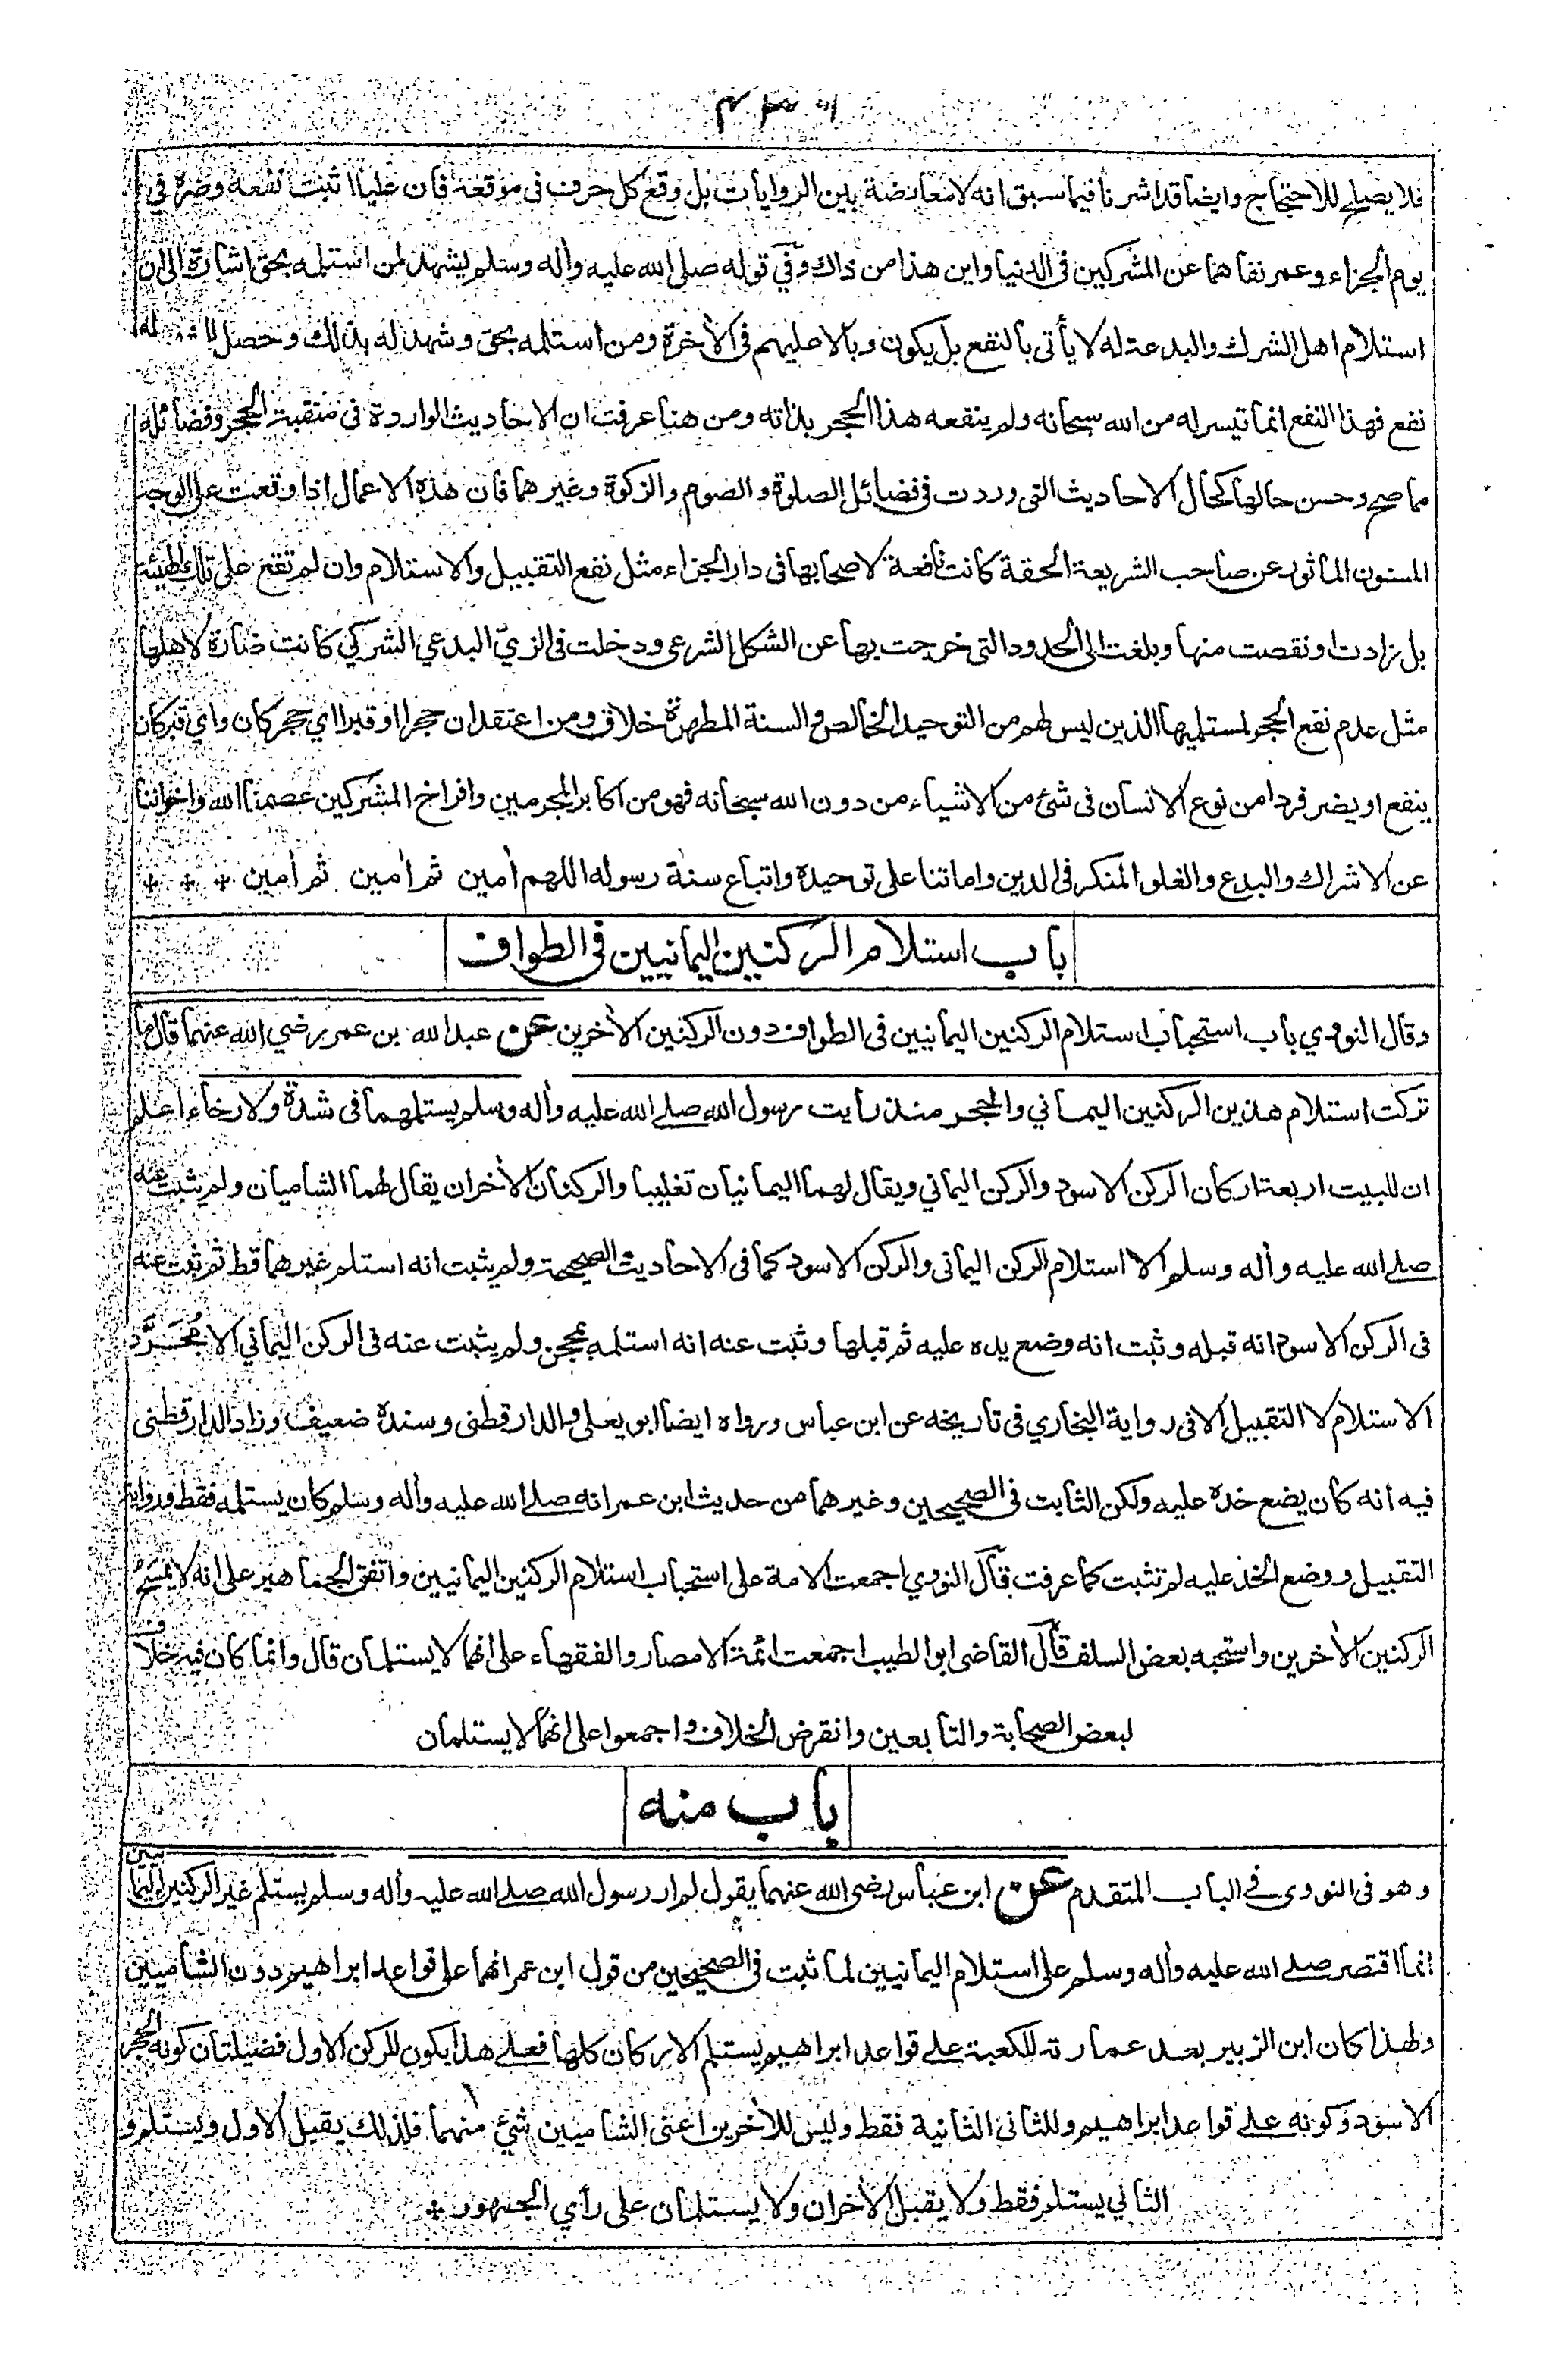 فلا يصلح للاحتجاج وايضا قد اشرنا فيما سبق انه لا معارضة بين الروايات بل وقع كل حرف فى موقعه فان عليا اثبت نفعه وضره في
يوم الجزاء وعمر نفاهما عن المشركين فى الدنيا واين هذا من ذاك وفي قوله صلى الله عليه واٰله وسلم يشهد لمن استلمه بحق اشارة الى ان
استلام اهل الشرك والبدعة له لا يأتى بالنفع بل يكون وبالا عليهم فى الاٰخرة ومن استلمه بحق وشهد له بذلك وحصل له
نفع فهذا النفع انما تيسر له من الله سبحانه ولم ينفعه هذا الحجر بذاته ومن هنا عرفت ان الاحاديث الواردة فى منقبة الحجر وفضائله
مما صح وحسن حالها كحال الاحاديث التى وردت فى فضائل الصلوة والصوم والزكوة وغيرهما فان هذه الاعمال اذا وقعت على الوجه
المسنون الماثور عن صاحب الشريعة الحقة كانت نافعة لاصحابها فى دار الجزاء مثل نفع التقبيل والاستلام وان لم تقع على تلك الهيئة
بل زادت او نقصت منها وبلغت الى الحدود التى خرجت بها عن الشكل الشرعى ودخلت فى الزيّ البدعي الشركي كانت ضارة لاهلها
مثل عدم نفع الحجر لمستلميها الذين ليس لهم من التوحيد الخالص والسنة المطهرة خلاق ومن اعتقد ان حجرا او قبرا اي حجر كان واي قبر كان
ينفع او يضر فردا من نوع الانسان فى شئ من الاشياء من دون الله سبحانه فهو من اكابر المجرمين وافراخ المشركين عصمنا الله واخواننا
عن الاشراك والبدع والغلو المنكر فى الدين واماتنا على توحيده واتباع سنة رسوله اللهم اٰمين ثم اٰمين ثم اٰمين
باب استلام الركنين اليمانيين فى الطواف
وقال النووي باب استحباب استلام الركنين اليمانيين فى الطواف دون الركنين الاٰخرين عن عبد الله بن عمر رضي الله عنهما قال ما
تركت استلام هذين الركنين اليماني والحجر منذ رأيت رسول الله صلے الله عليه واٰله وسلم يستلمهما فى شدة ولا رخاء اعلم
ان للبيت اربعة اركان الركن الاسود والركن اليماني ويقال لهما اليمانيان تغليبا والركنان الاٰخران يقال لهما الشاميان ولم يثبت عنه
صلے الله عليه واٰله وسلم الا استلام الركن اليمانى والركن الاسود كما فى الاحاديث الصحيحة ولم يثبت انه استلم غيرهما قط ثم ثبت عنه
فى الركن الاسود انه قبله وثبت انه وضع يده عليه ثم قبلها وثبت عنه انه استلمه بمحجن ولم يثبت عنه فى الركن اليماني الا مُجَرَّد
الاستلام لا التقبيل الا فى رواية البخاري فى تاريخه عن ابن عباس ورواه ايضا ابو يعلى والدارقطنى وسنده ضعيف وزاد الدارقطنى
فيه انه كان يضع خده عليه ولكن الثابت فى الصحيحين وغيرهما من حديث ابن عمر انه صلے الله عليه واٰله وسلم كان يستلمه فقط ورواية
التقبيل ووضع الخد عليه لم تثبت كما عرفت قال النووي اجمعت الامة على استحباب استلام الركنين اليمانيين واتفق الجماهير على انه لا يمسح
الركنين الاٰخرين واستحبه بعض السلف قال القاضى ابو الطيب اجمعت ائمة الامصار والفقهاء على انهما لا يستلمان قال وانما كان فيه خلاف
لبعض الصحابة والتابعين وانقرض الخلاف واجمعوا على انهما لا يستلمان
باب منه
وهو فى النووى فى الباب المتقدم عن ابن عباس رضى الله عنهما يقول لم ار رسول الله صلے الله عليه واٰله وسلم يستلم غير الركنين اليمانيين
انما اقتصر صلے الله عليه واٰله وسلم على استلام اليمانيين لما ثبت فى الصحيحين من قول ابن عمر انهما على قواعد ابراهيم دون الشاميين
ولهذا كان ابن الزبير بعد عمارته للكعبة على قواعد ابراهيم يستلم الاركان كلها فعلے هذا يكون للركن الاول فضيلتان كونه الحجر
الاسود وكونه علے قواعد ابراهيم وللثانى الثانية فقط وليس للاٰخرين اعنى الشاميين شئ منهما فلذلك يقبل الاول ويستلم و
الثاني يستلم فقط ولا يقبل الاٰخران ولا يستلمان على رأي الجمهور